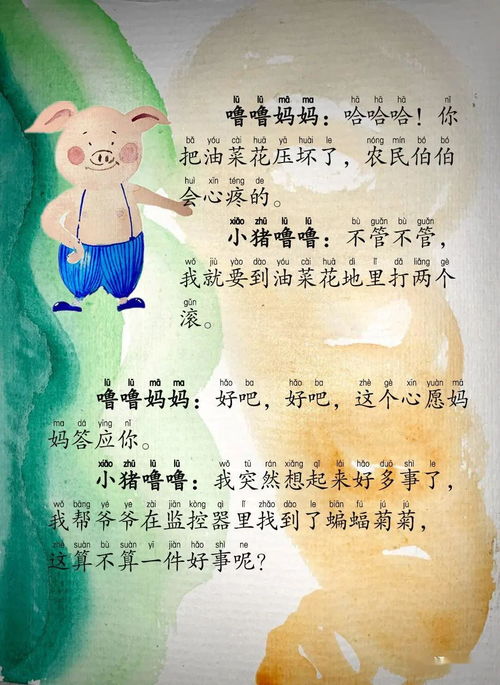 lū lū mā ma hā hā hā nǐ
噜噜妈妈：哈哈哈！你
bǎ yóu cài huā yā huài le nóng mín bó bó
把油菜花压坏了，农民伯伯
huì xīn téng de
会心疼的。
xiǎo zhū lū lū bù guǎn bù guǎn
小猪噜噜：不管不管，
wǒ jiù yào dào yóu cài huā dì lǐ dǎ liǎng gè
我就要到油菜花地里打两个
gǔn
滚。
lū lū mā ma hǎo ba hǎo ba zhè gè xīn yuàn mā
噜噜妈妈：好吧，好吧，这个心愿妈
ma dā yìng nǐ
妈答应你。
xiǎo zhū lū lū wǒ tū rán xiǎng qǐ lái hǎo duō shì le
小猪噜噜：我突然想起来好多事了，
wǒ bāng yé ye zài jiān kòng qì lǐ zhǎo dào le biān fú jú jú
我帮爷爷在监控器里找到了蝙蝠菊菊，
zhè suàn bù suàn yī jiàn hǎo shì ne
这算不算一件好事呢？